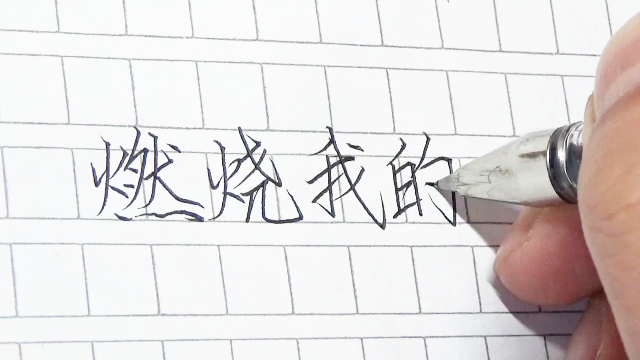 燃烧我的